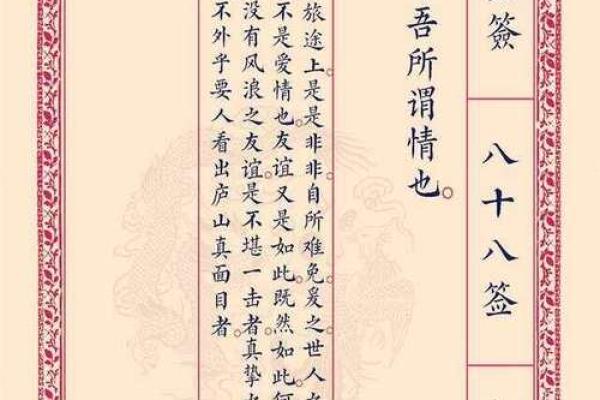 簽
八十八签
吾所谓情也。
旅途上。是是非非。自所难免。爰之世人
不是爱情也。友谊又是如此。既然如此。何
没有风浪之友谊。是不堪一击者。真挚
不外乎要人看出庐山真面目者。